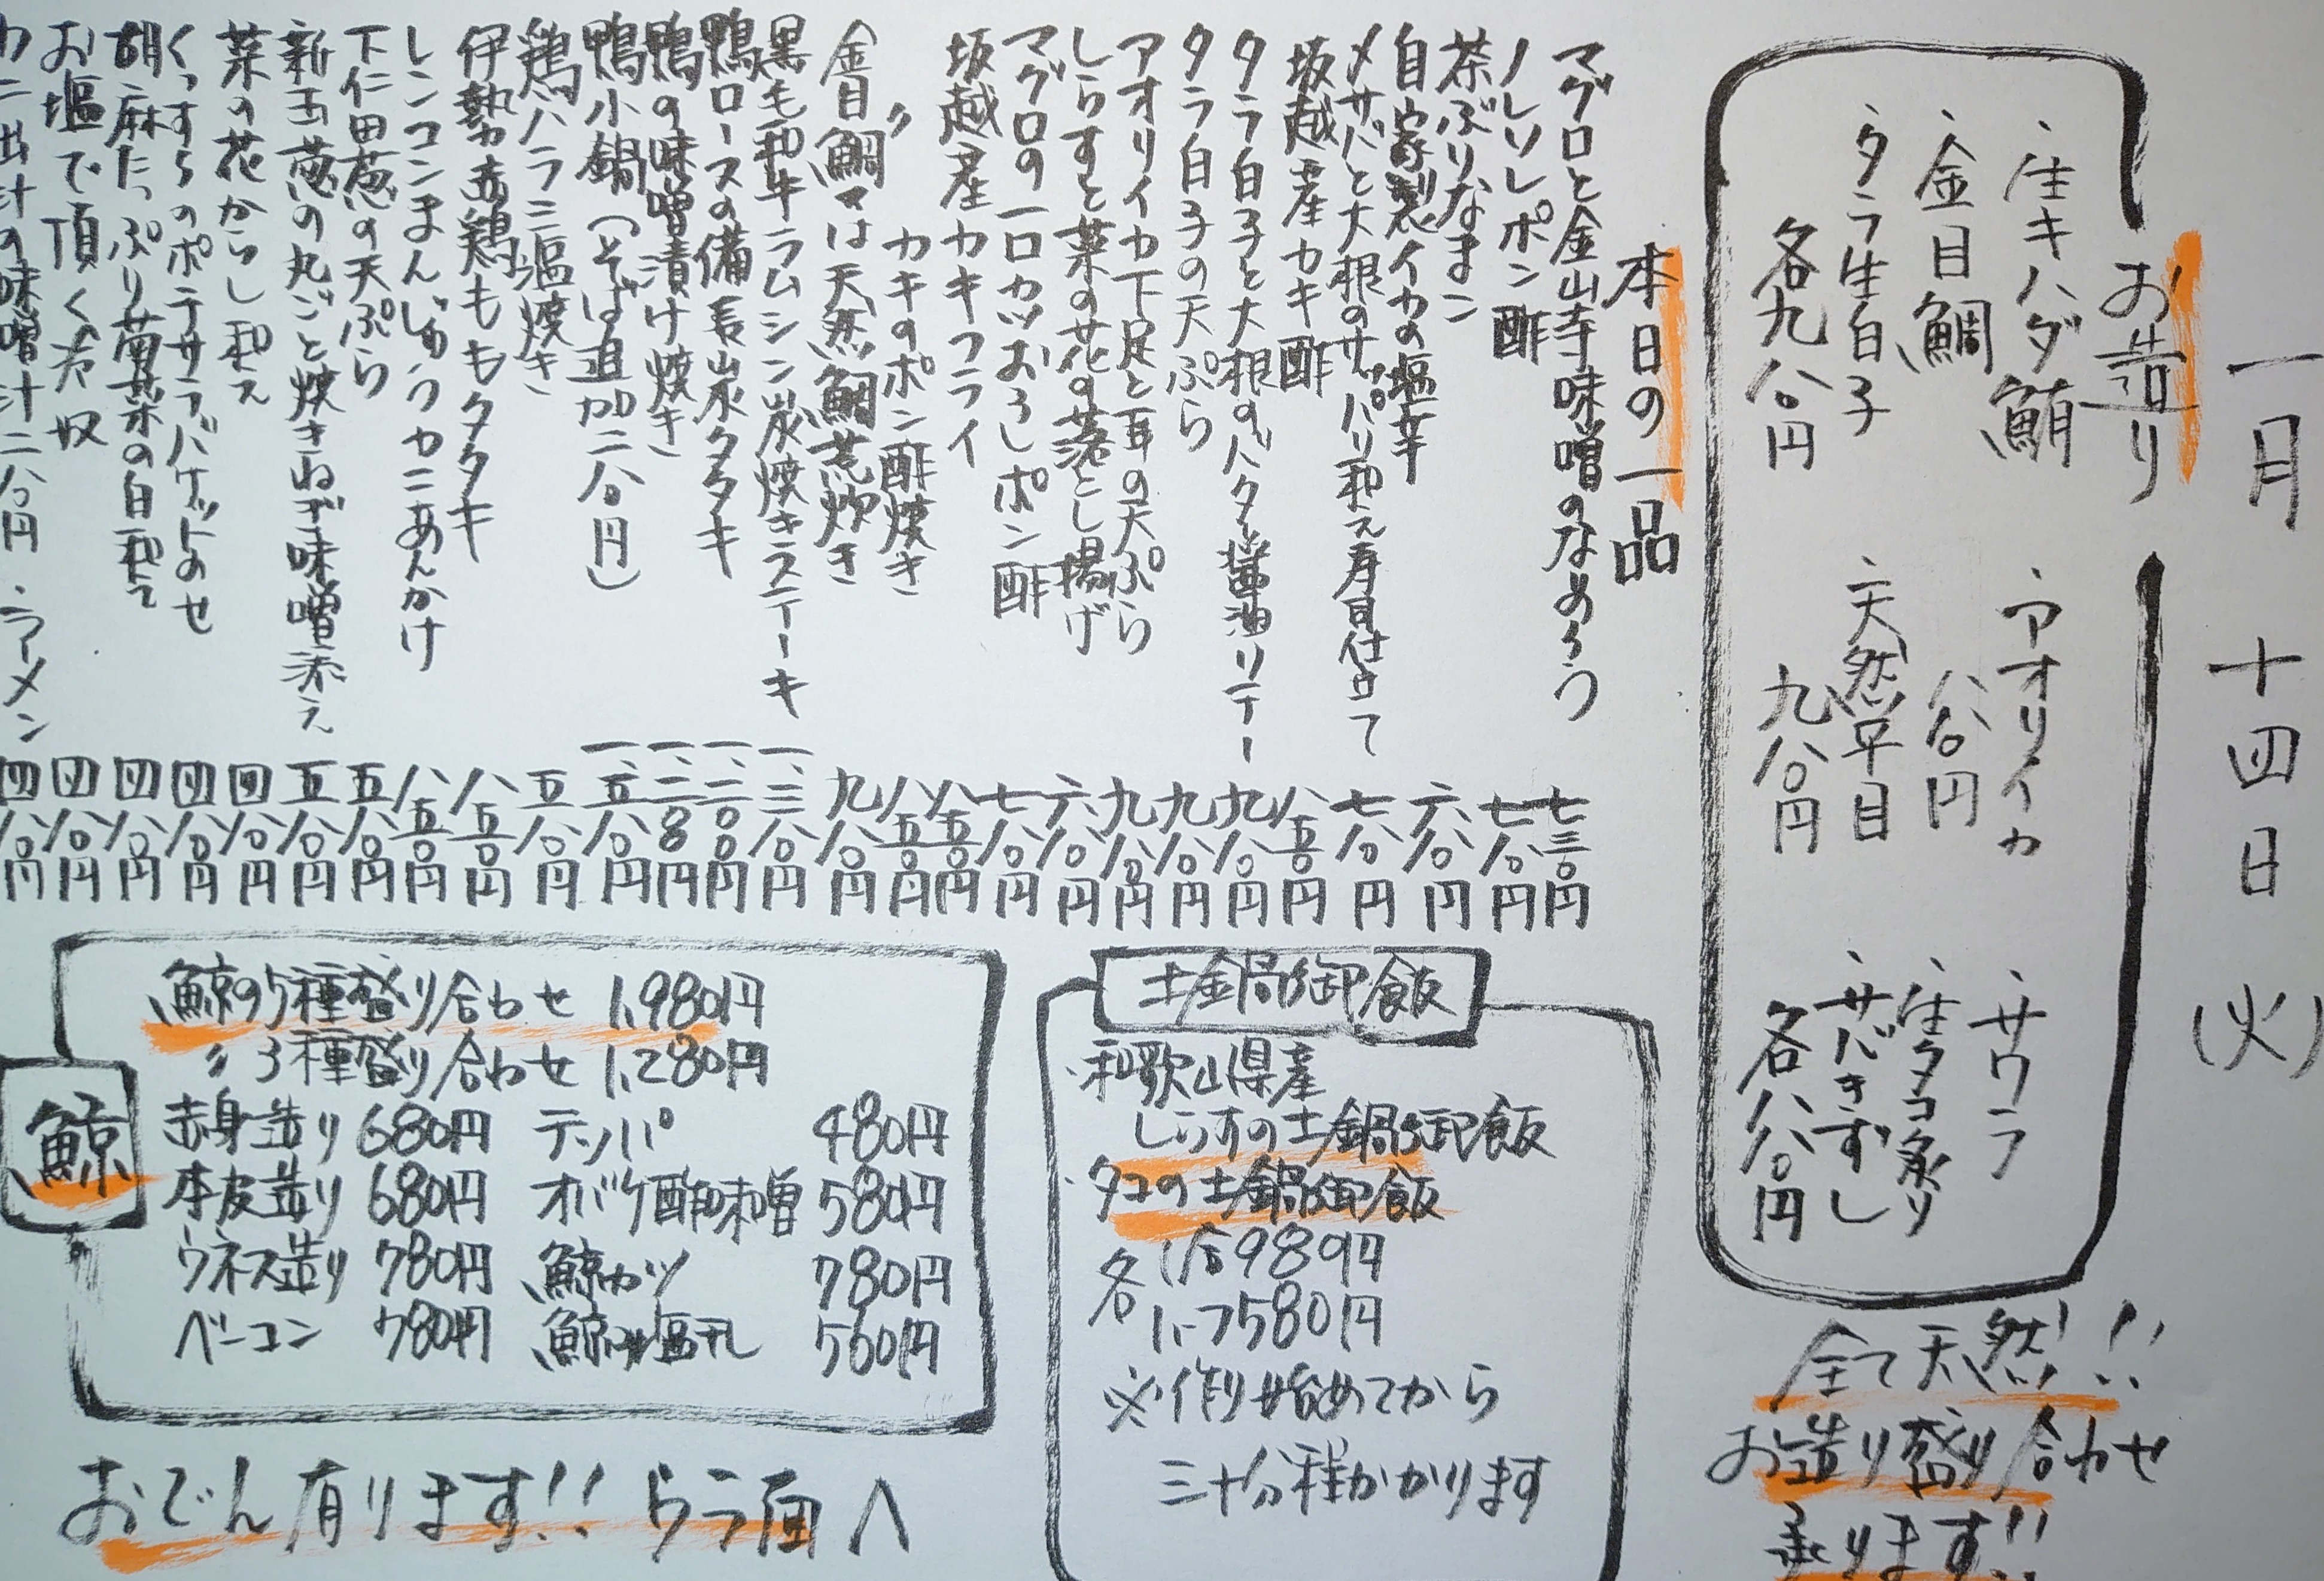 一月 十四日 (火)
お造り
・生キハダ鮪
・金目鯛
・タラ生白子
各九八〇円
・アオリイカ
八八〇円
・天然平目
九八〇円
・サワラ
・生タコ炙り
・サバきずし
各八八〇円
全て天然!!
お造り盛り合わせ
承ります!!
本日の一品
マグロと金山寺味噌のなめろう 七三〇円
ノレソレポン酢 七八〇円
茶ぶりなまこ 六八〇円
自家製イカの塩辛
〆サバと大根のサッパリ和え寿司仕立て 七八〇円
坂越産カキ酢 八五〇円
タラ白子と大根のバター醤油ソテー 九八〇円
タラ白子の天ぷら 九八〇円
アオリイカ下足と耳の天ぷら 九八〇円
しらすと菜の花の落とし揚げ 六八〇円
マグロの一口カツおろしポン酢 七八〇円
坂越産カキフライ 八五〇円
〃 カキのポン酢焼き 八五〇円
金目鯛又は天然鯛荒炊き 九八〇円
黒毛和牛ラムシン炭焼きステーキ 一、三八〇円
鴨ロースの備長炭タタキ 一、二〇〇円
鴨の味噌漬け焼き 一、二〇〇円
鴨小鍋(そば追加二八〇円) 一、五八〇円
鶏ハラミ塩焼き 五八〇円
伊勢赤鶏ももタタキ 八五〇円
レンコンまんじゅうカニあんかけ 八五〇円
下仁田葱の天ぷら 五八〇円
新玉葱の丸ごと焼きねぎ味噌添え 五八〇円
菜の花からし和え 四八〇円
くっすらのポテサラバゲットのせ 四八〇円
胡麻たっぷり菊菜の白和え 四八〇円
お塩で頂く冷奴 四八〇円
カニ出汁の味噌汁二八〇円・ラーメン 四八〇円
土鍋御飯
・和歌山県産
しらすの土鍋御飯
・タコの土鍋御飯
各 1合989円
ハーフ580円
※作り始めてから
三十分程かかります
鯨
鯨の5種盛り合わせ 1,980円
〃3種盛り合わせ 1,280円
赤身造り 680円 テッパ 480円
本皮造り 680円 オバケ酢味噌 580円
ウネス造り 780円 鯨カツ 780円
ベーコン 780円 鯨塩干し 560円
おでん有ります!! ウラ面へ